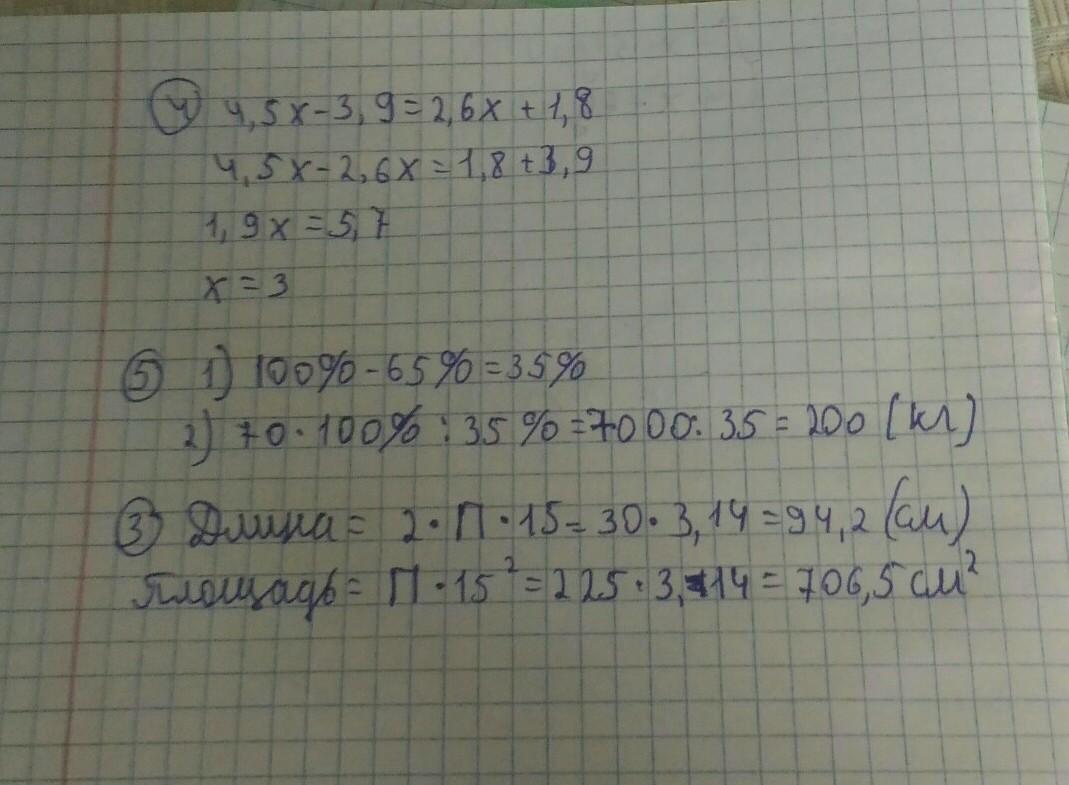 ④ 4,5x-3,9=2,6x+1,8
4,5x-2,6x=1,8+3,9
1,9x=5,7
x=3
⑤ 1) 100%-65%=35%
2) 70·100%:35%=7000:35=200 (кг)
③ Длина= 2·П·15=30·3,14=94,2 (см)
Площадь= П·15²=225·3,14=706,5 см²